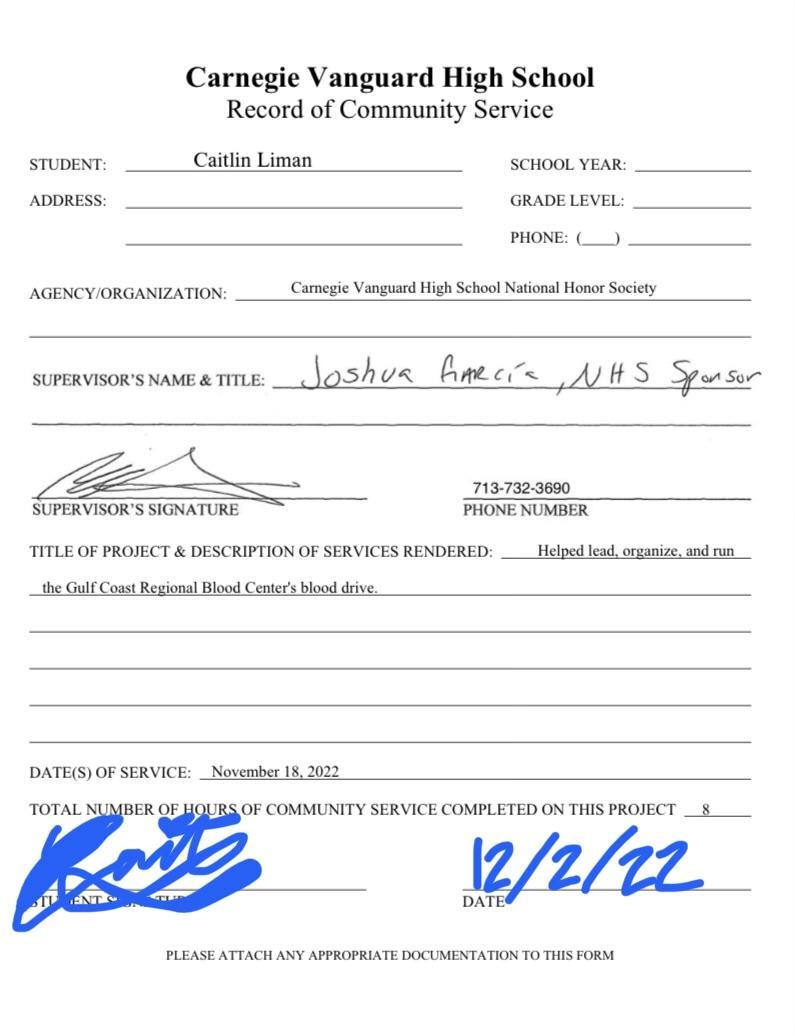 Carnegie Vanguard High School
Record of Community Service
STUDENT: Caitlin Liman SCHOOL YEAR:
ADDRESS: GRADE LEVEL:
PHONE: (___)
AGENCY/ORGANIZATION: Carnegie Vanguard High School National Honor Society
SUPERVISOR'S NAME & TITLE: Joshua García, NHS Sponsor
713-732-3690
SUPERVISOR'S SIGNATURE PHONE NUMBER
TITLE OF PROJECT & DESCRIPTION OF SERVICES RENDERED: Helped lead, organize, and run
the Gulf Coast Regional Blood Center's blood drive.
DATE(S) OF SERVICE: November 18, 2022
TOTAL NUMBER OF HOURS OF COMMUNITY SERVICE COMPLETED ON THIS PROJECT 8
12/2/22
STUDENT SIGNATURE DATE
PLEASE ATTACH ANY APPROPRIATE DOCUMENTATION TO THIS FORM